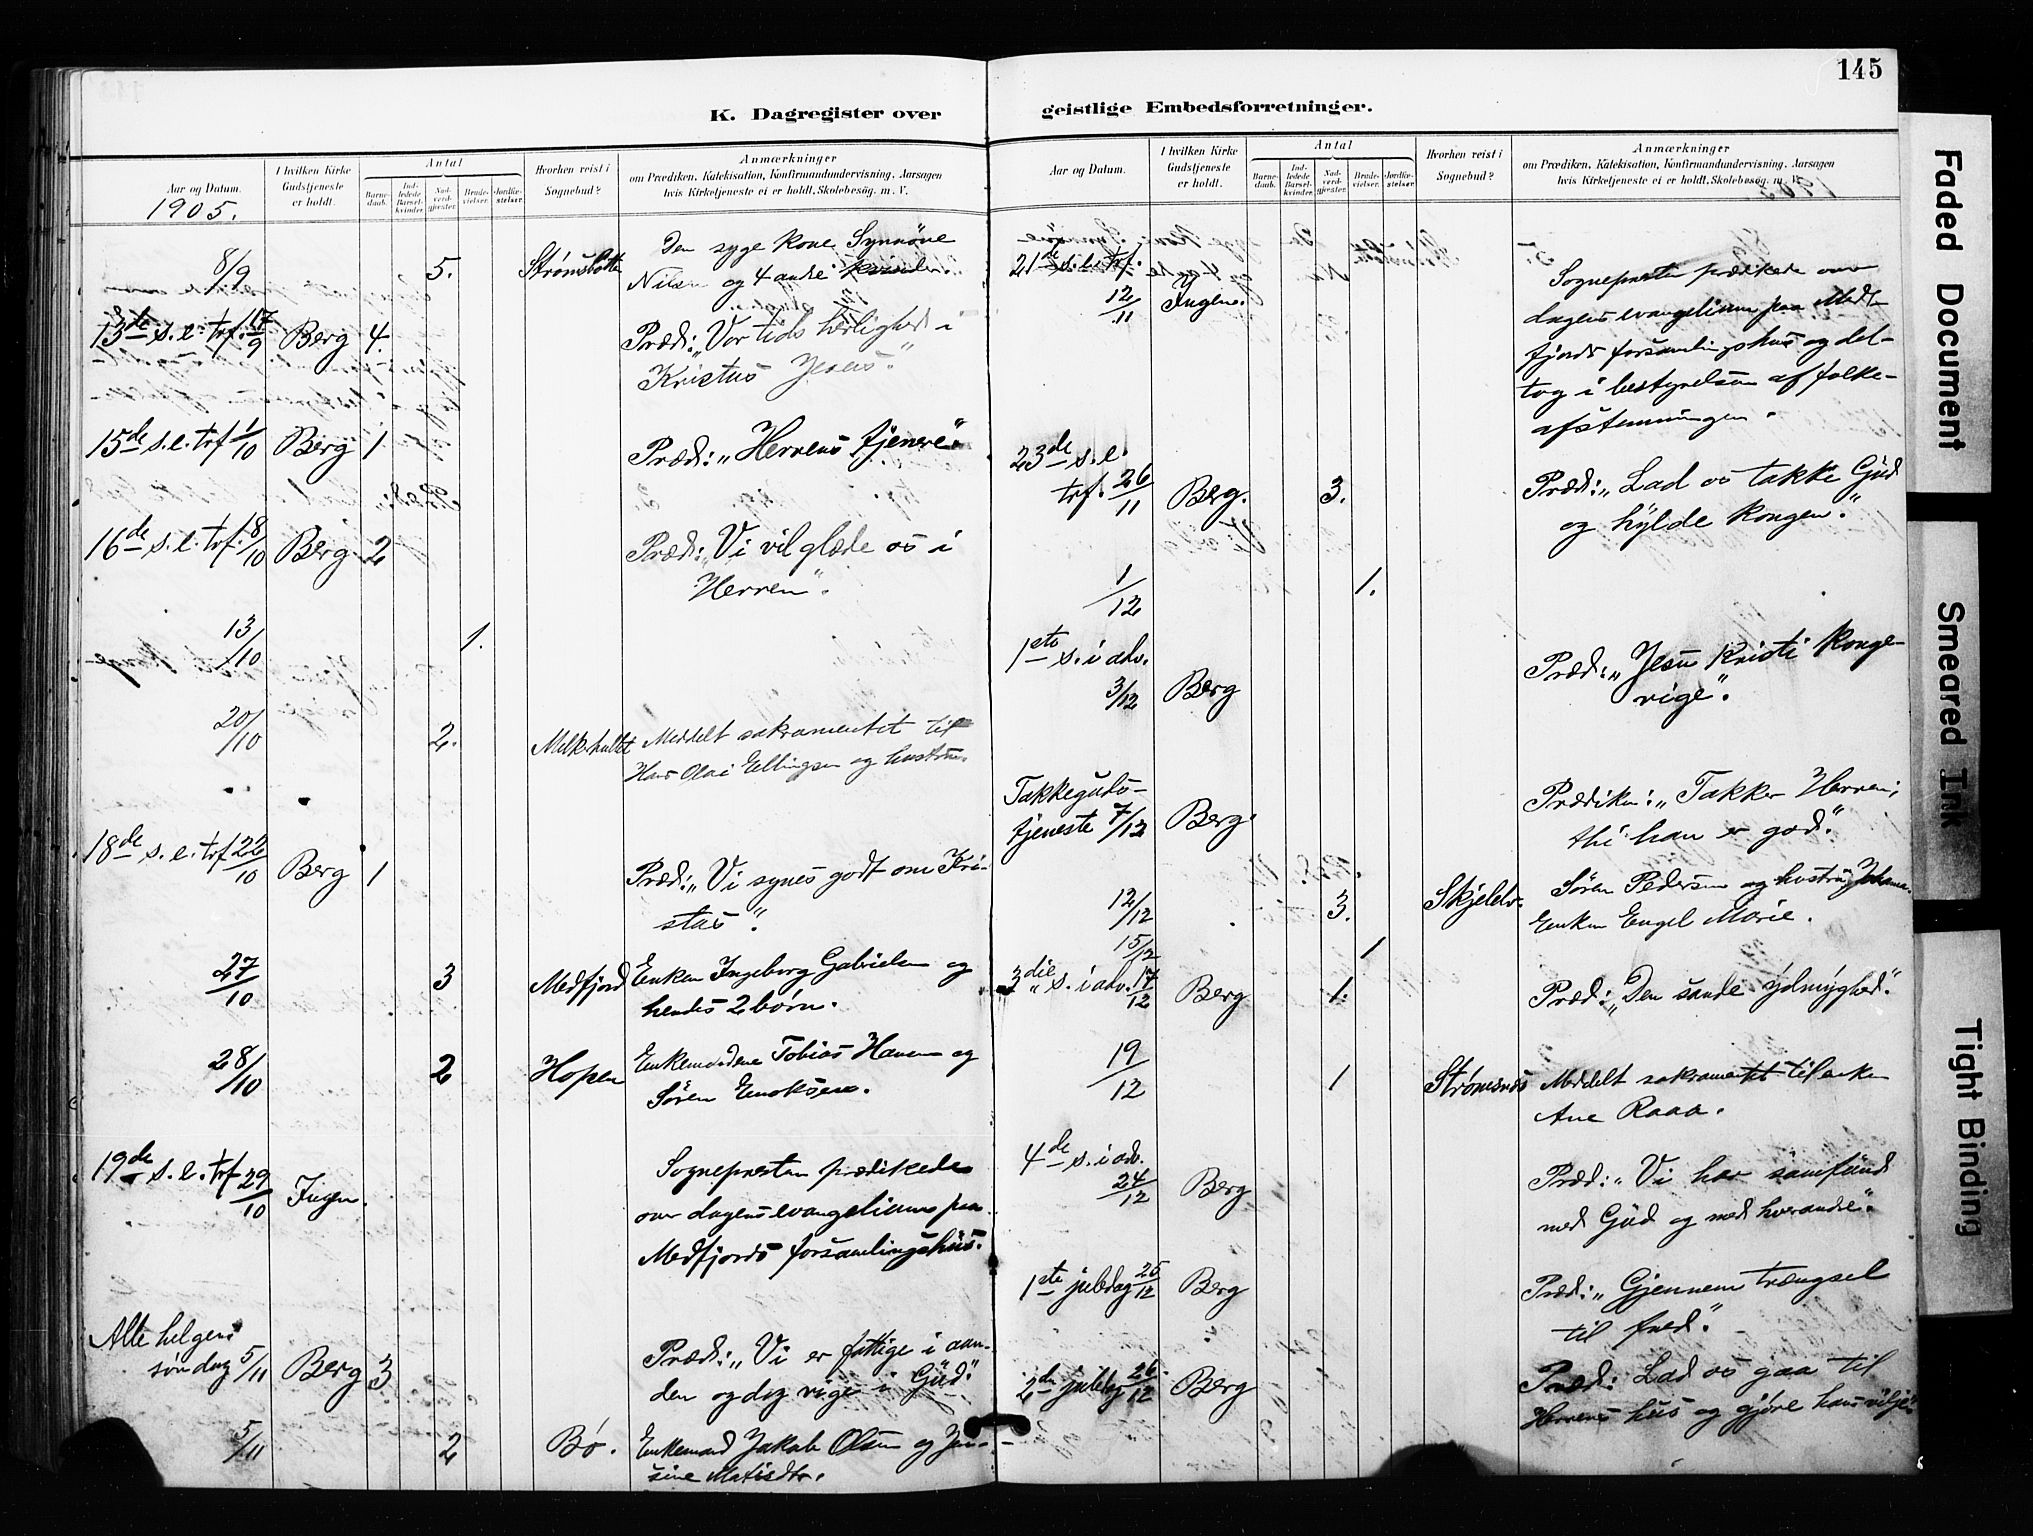 145
K. Dagregister over
geistlige Embedsforretninger.
Aar og Datum.
1905.
I hvilken Kirke
Gudstjeneste
er holdt.
Antal
Barne-
daab.
Ind-
ledede
Barsel-
kvinder.
Nad-
verd-
gjester.
Brude-
vielser.
Jordfæ-
stelser.
Hvorhen reist i
Sognebud?
Anmærkninger
om Prædiken, Katekisation, Konfirmandundervisning, Aarsagen
hvis Kirketjeneste ei er holdt, Skolebesøg. m. V.
8/9 5. Strømsbotn Den syge kone Synnöve
Nilsen og 4 andre
13de s. e. trf. 17/9 Berg 4. Præd: „Vor tids herlighed i
Kristus Jesus."
15de s. e. trf 1/10 Berg 1. Præd: „Herrens tjenere".
16de s. e. trf. 8/10 Berg 2 Præd: „Vi vil glæde os i
Herren".
13/10 1.
20/10 2. Meddelt sakramentet til
Hans Olai Ellingsen og hustru.
18de s. e. trf 22/10 Berg 1 Præd: „Vi synes godt om Kri-
stus".
27/10 3 Medfjord Enken Ingeborg Gabrielsen og
hendes 2 børn.
28/10 2 Hopen Enkemændene Tobias Hansen og
Sören Enoksen.
19de s. e. trf 29/10 Ingen. Sognepresten prædikede
over dagens evangelium paa
Medfjords forsamlingshüs.
Alle helgens
søndag 5/11 Berg 3 Præd: „Vi er fattige i aan-
den og dog rige i Gud."
5/11 2 Bø. Enkemand Jakob Olsen og Jen-
sine Matisdtr.
Aar og Datum.
I hvilken Kirke
Gudstjeneste
er holdt.
Antal
Barne-
daab.
Ind-
ledede
Barsel-
kvinder.
Nad-
verd-
gjester.
Brude-
vielser.
Jordfæ-
stelser.
Hvorhen reist i
Sognebud?
Anmærkninger
om Prædiken, Katekisation, Konfirmandundervisning, Aarsagen
hvis Kirketjeneste ei er holdt, Skolebesøg. m. V.
21de s. e. trf.
12/11 Ingen. Sognepresten prædikede over
dagens evangelium paa Med-
fjords forsamlingshus og del-
tog i bestyrelsen af folke-
afstemningen.
23de s. e.
trf. 26/11 Berg. 3. Præd: „Lad os takke Gud
og hylde kongen."
1/12 1.
1ste s. i adv.
3/12 Berg Præd: „Jesu Kristi konge-
rige".
Takkeguds-
tjeneste 7/12 Berg. Prædiken: „Takker Herren;
thi han er god."
12/12 3. Skjelelv. Sören Pedersen og hustru Johanna.
Enken Engel Marie.
15/12 1
3die s. i adv. 17/12 Berg 1. Præd: „Den sande ydmyghed."
19/12 1 Strømsnes Meddelt sakramentet til enke
Ane Raaa.
4de s. i adv.
24/12 Berg Præd: „Vi har samfund
med Gud og med hverandre."
1ste juledag 25/12 Berg Præd: „Gjennem trængsel
til fred."
2den juledag 26/12 Berg Præd: Lad os gaa til
Herrens hus og gjøre hans vilje
Faded Document
Smeared Ink
Tight Binding